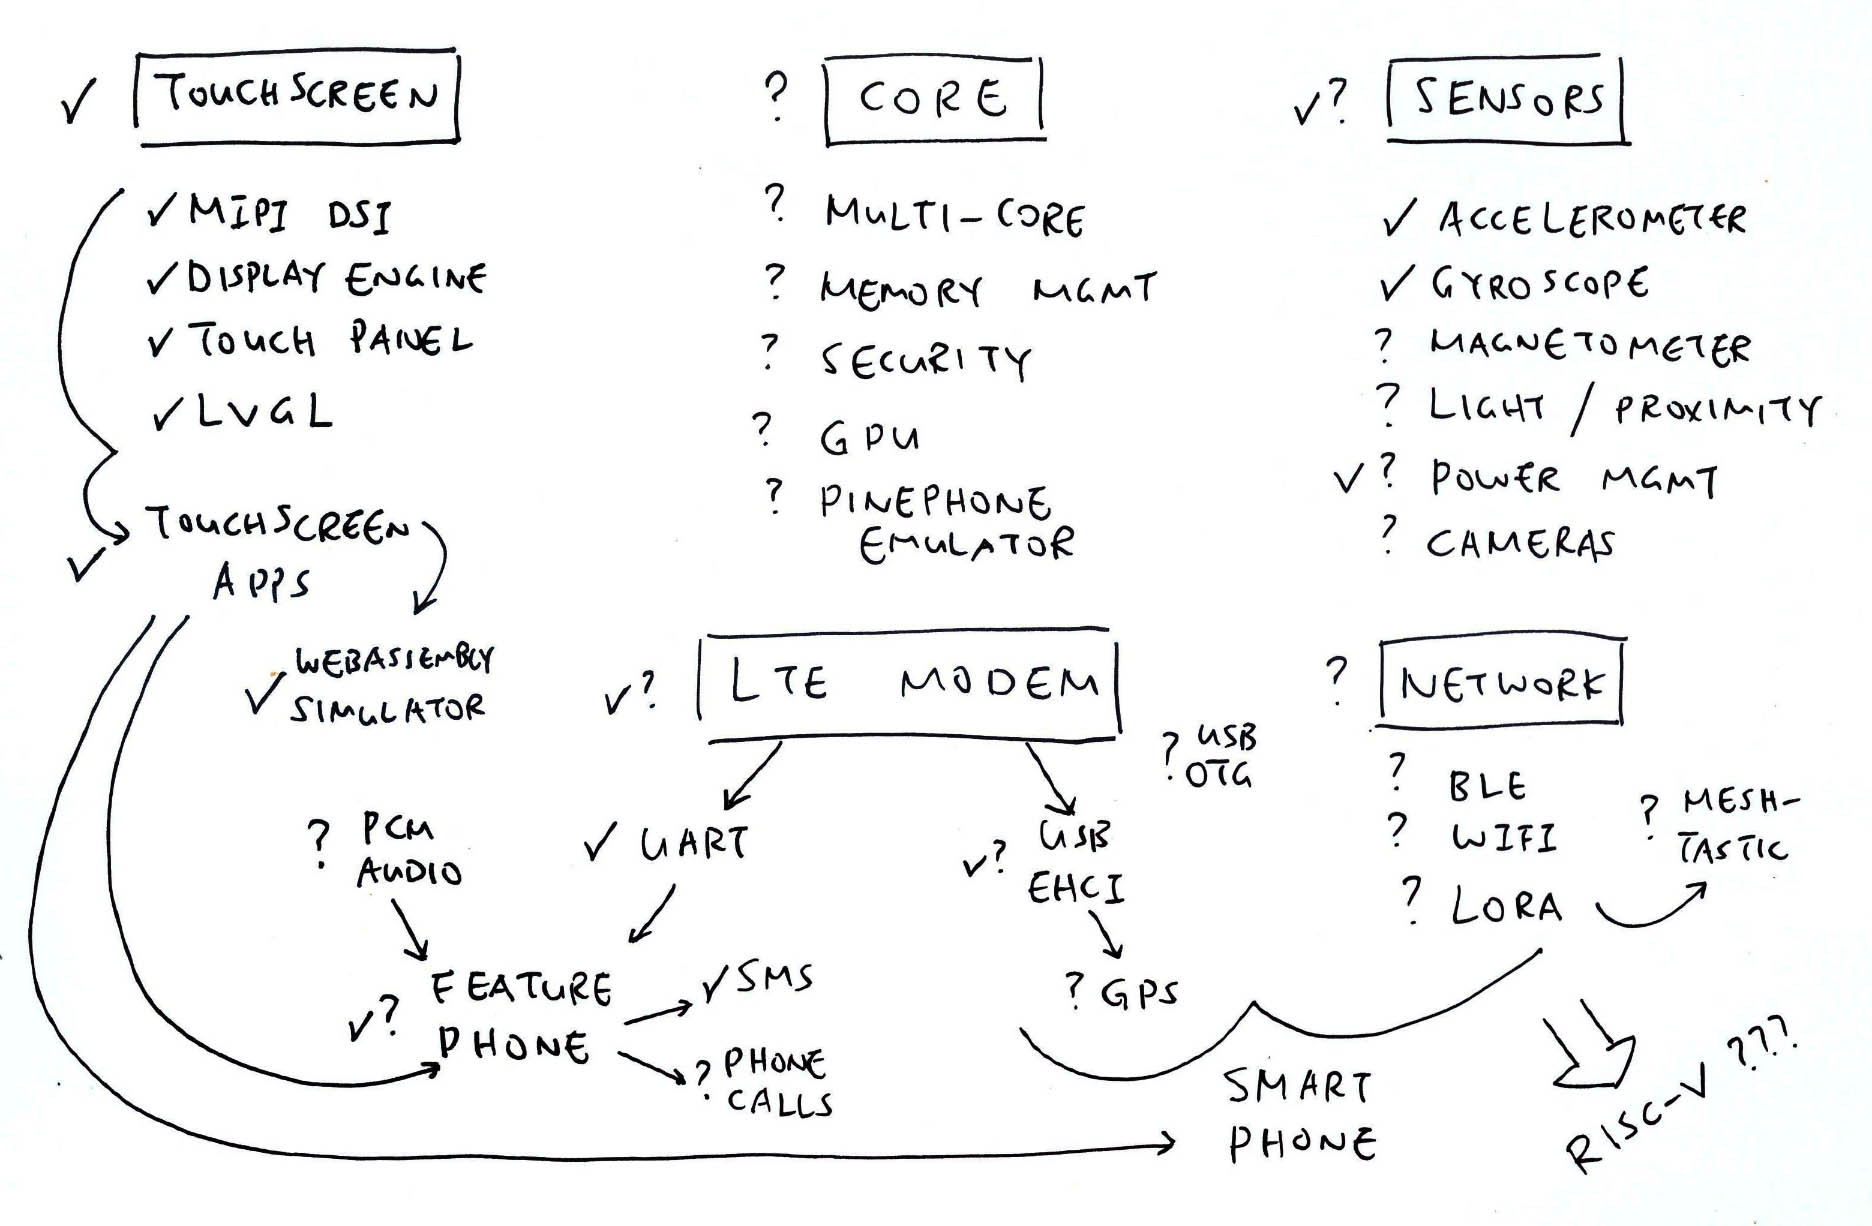 ✓ TOUCHSCREEN
✓ MIPI DSI
✓ DISPLAY ENGINE
✓ TOUCH PANEL
✓ LVGL
✓ TOUCHSCREEN
APPS
✓ WEBASSEMBLY
SIMULATOR
? CORE
? MULTI-CORE
? MEMORY MGMT
? SECURITY
? GPU
? PINEPHONE
EMULATOR
✓? SENSORS
✓ ACCELEROMETER
✓ GYROSCOPE
? MAGNETOMETER
? LIGHT / PROXIMITY
✓? POWER MGMT
? CAMERAS
✓? LTE MODEM
? USB
OTG
? PCM
AUDIO
✓ UART
✓? USB
EHCI
✓? FEATURE
PHONE
✓ SMS
? PHONE
CALLS
? GPS
? NETWORK
? BLE
? WIFI
? LORA
? MESH-
TASTIC
SMART
PHONE
RISC-V ???